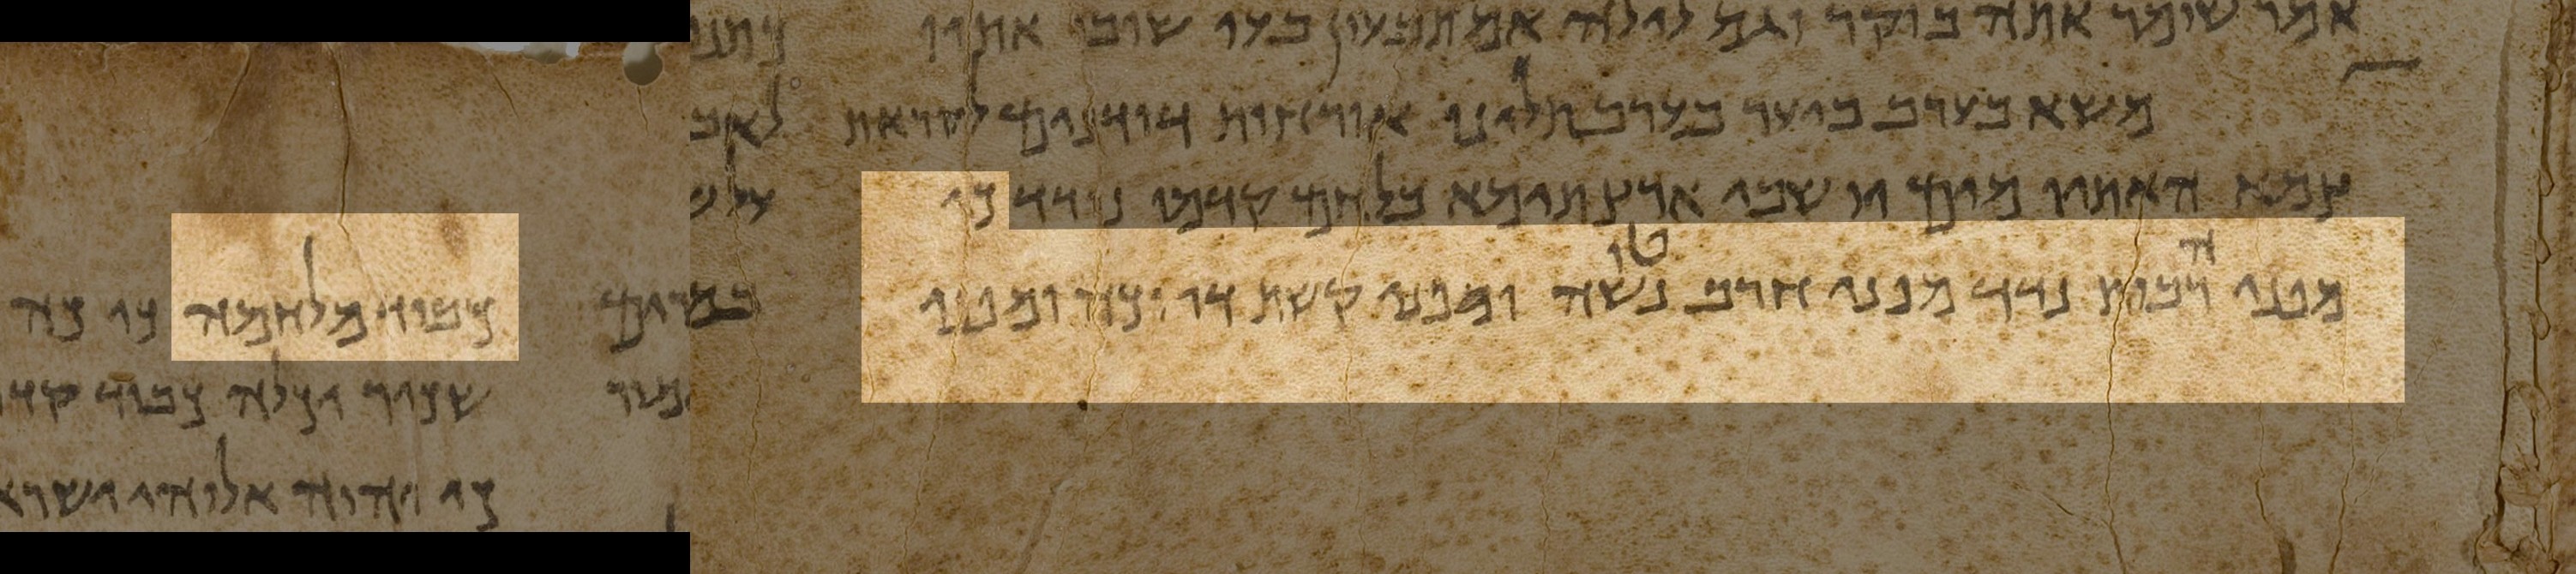 אמר שומר אתה בוקר וגם לילה אם תבעון בעו שובו אתיו
משא בערב ביער בערב תלינו אורחות דודנים לקראת
צמא האתיו מים יושבי ארץ תימא בלחם קדמו נודד כי
מפני רבים נדד מפני חרב נטושה ומפני קשת דרוכה ומפני
כבוד מלחמה כי כה
שכיר וכלה כבוד קד
כי יהוה אלוהי ישרא